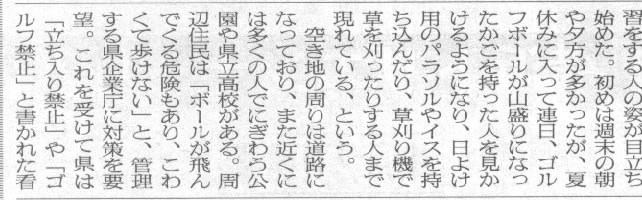 習をする人の姿が目立ち
始めた。初めは週末の朝
や夕方が多かったが、夏
休みに入って連日、ゴル
フボールが山盛りになっ
たかごを持った人を見か
けるようになり、日よけ
用のパラソルやイスを持
ち込んだり、草刈り機で
草を刈ったりする人まで
現れている、という。
　空き地の周りは道路に
なっており、また近くに
は多くの人でにぎわう公
園や県立高校がある。周
辺住民は「ボールが飛ん
でくる危険もあり、こわ
くて歩けない」と、管理
する県企業庁に対策を要
望。これを受けて県は
「立ち入り禁止」や「ゴ
ルフ禁止」と書かれた看